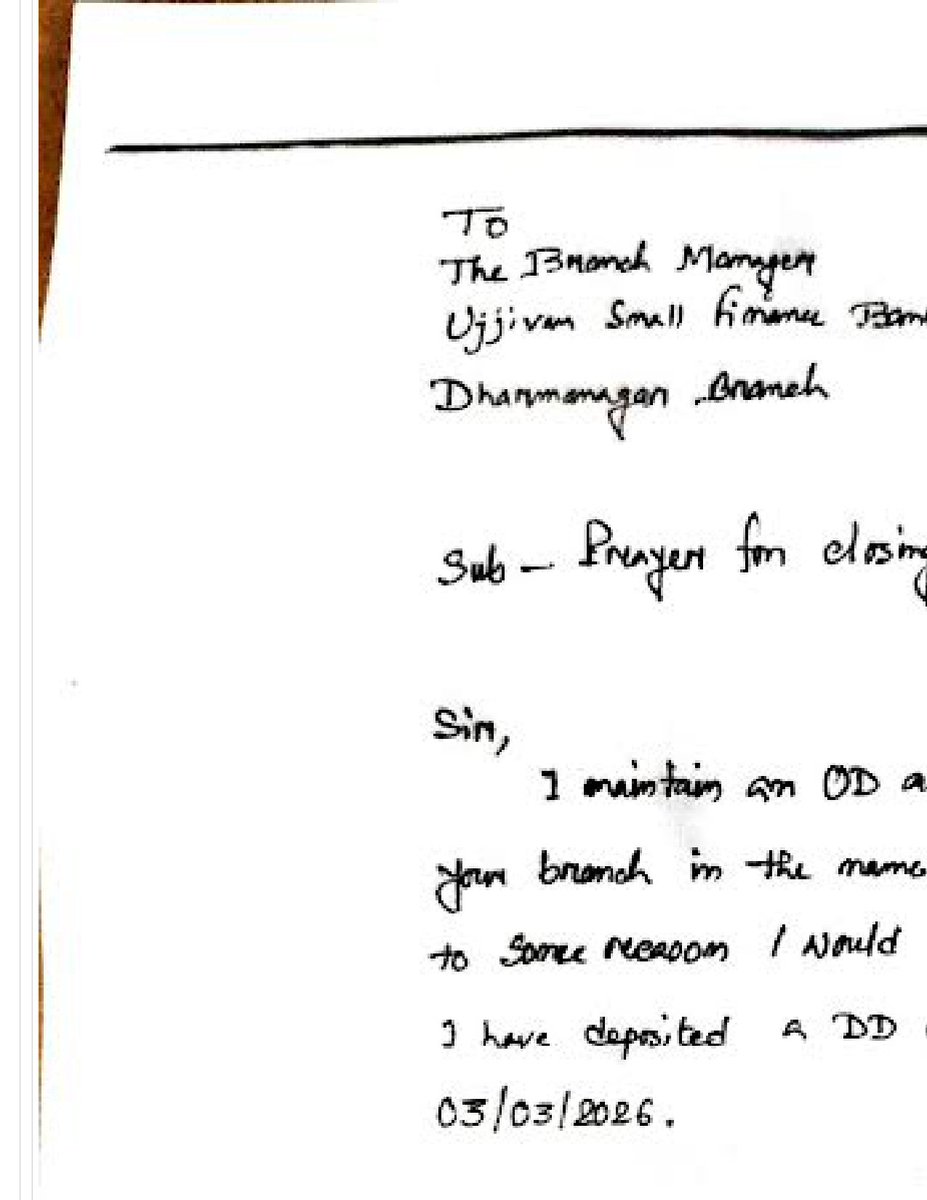 To
The Branch Manager
Ujjivan Small finance Ban
Dharmanagar Branch
Sub - Prayer for closing
Sir,
I maintain an OD a
your branch in the name
to some reason I would
I have deposited a DD
03/03/2026.